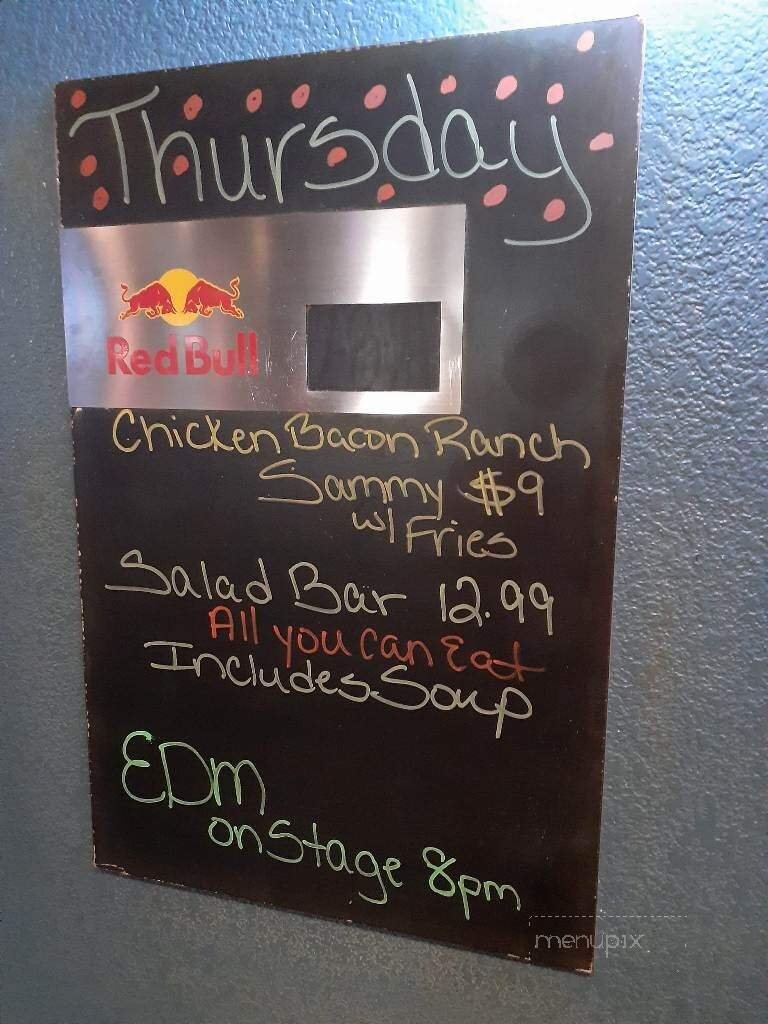 Thursday
Red Bull
Chicken Bacon Ranch
Sammy $9
w/ Fries
Salad Bar 12.99
All you can Eat
Includes Soup
EDM
on Stage 8pm
menupix